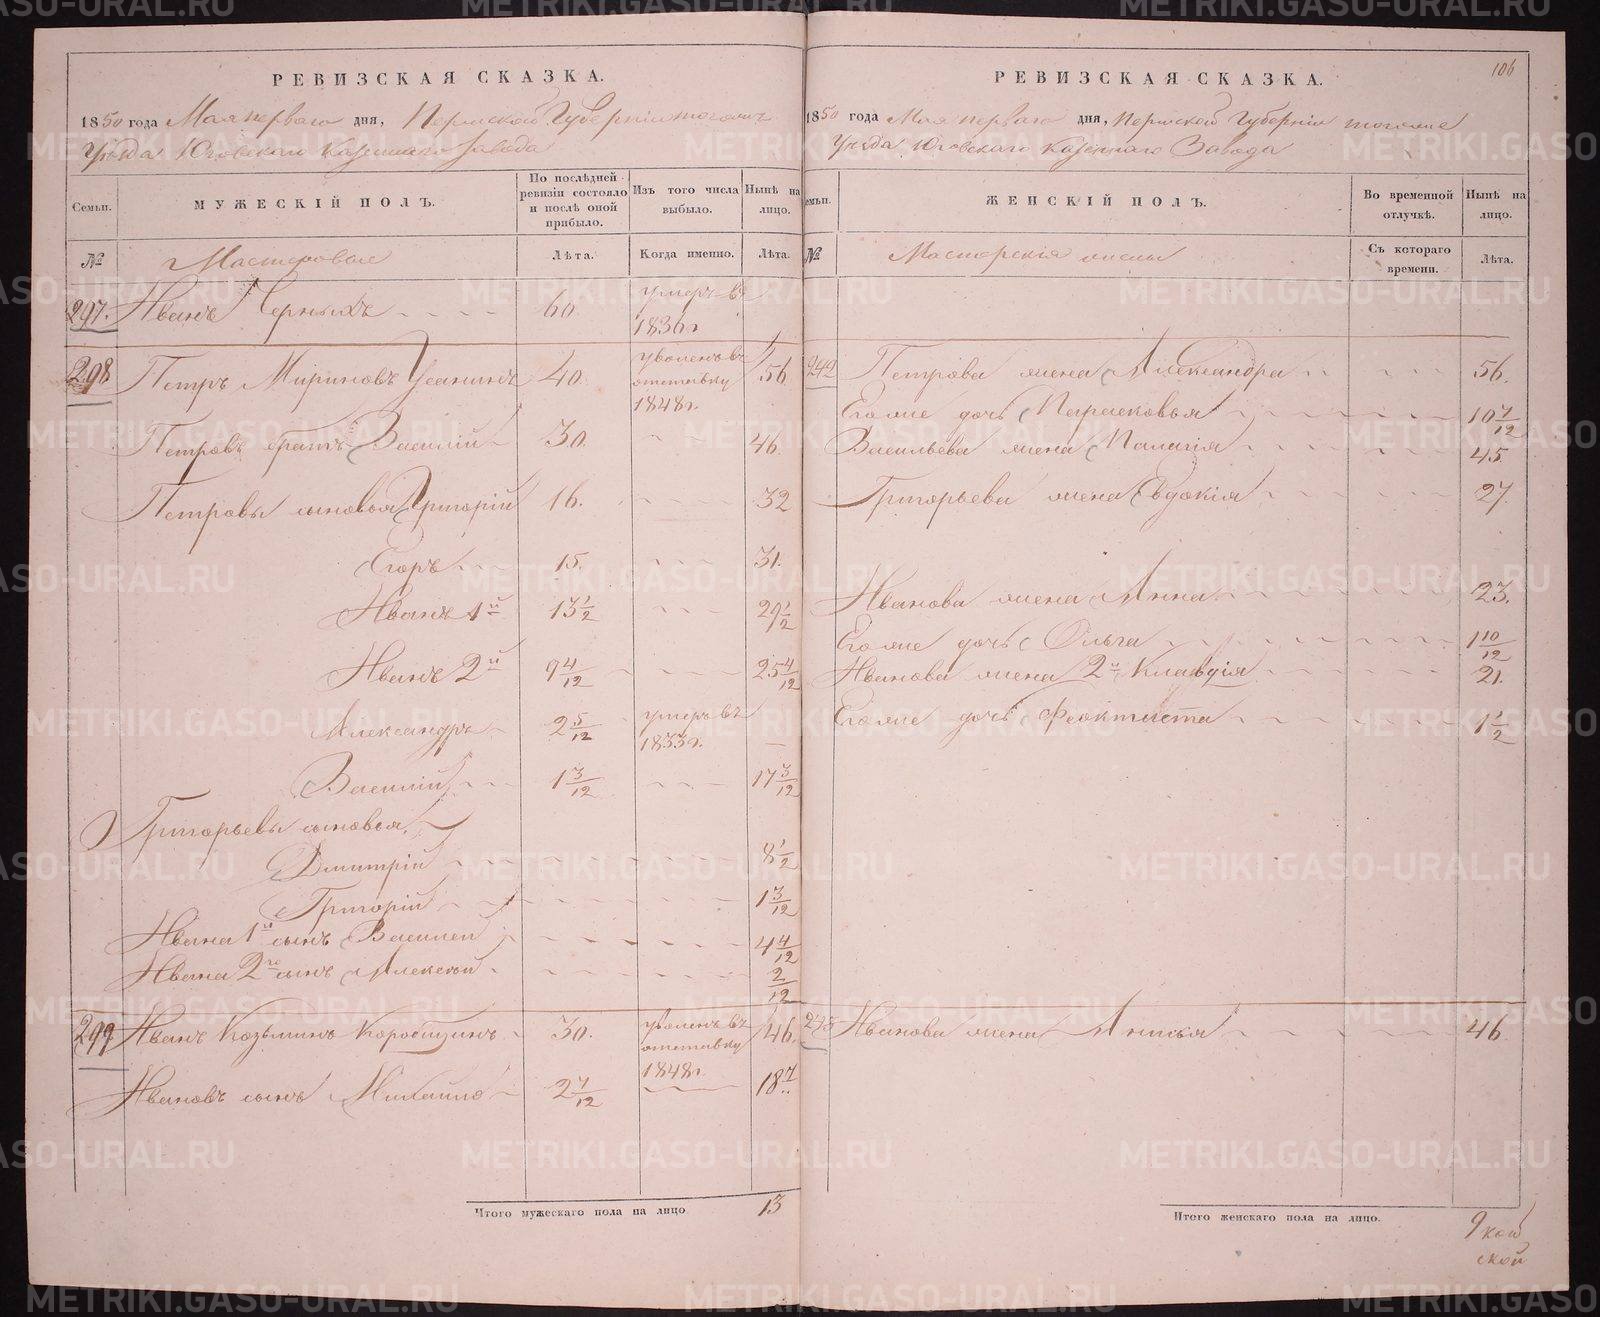 РЕВИЗСКАЯ СКАЗКА.
1850 года Мая перваго дня, Пермской Губерніи тогожъ
Уѣзда Юговскаго Казеннаго Завода
Семьи.
МУЖЕСКІЙ ПОЛЪ.
По послѣдней ревизіи состояло и послѣ оной прибыло.
Изъ того числа выбыло.
Нынѣ на лицо.
№
Мастеровые
Лѣта.
Когда именно.
Лѣта.
297. Иванъ Черныхъ 60. умеръ въ 1836 г.
298 Петръ Мироновъ Усанинъ 40. уволенъ въ отставку 1848 г. 56
Петровъ братъ Василій 30. 46.
Петровы сыновья Григорій 16. 32
Егоръ 15. 31.
Иванъ 1й 13 1/2 29 1/2
Иванъ 2й 9 4/12 25 4/12
Александръ 2 5/12 умеръ въ 1833 г. —
Василій 1 3/12 17 3/12
Григорьевы сыновья,
Дмитрій 8 1/2
Григорій 1 3/12
Ивана 1й сынъ Василей 4 4/12
Ивана 2го сынъ Алексѣй 2/12
299 Иванъ Козьминъ 30. уволенъ въ отставку 1848 г. 46.
Ивановъ сынъ Михайло 2 7/12 18 7/..
Итого мужескаго пола на лицо 13
106
РЕВИЗСКАЯ СКАЗКА.
1850 года Мая перваго дня, Пермской Губерніи тогоже
Уѣзда Юговскаго Казеннаго Завода
емьи.
ЖЕНСКІЙ ПОЛЪ.
Во временной отлучкѣ.
Нынѣ на лицо.
№
Мастерскія жены
Съ котораго времени.
Лѣта.
242 Петрова жена Александра 56.
Егоже дочь Парасковья 10 7/12
Васильева жена Палагія 45.
Григорьева жена Евдокія 27.
Иванова жена Анна 23.
Егоже дочь Ольга 1 10/12
Иванова жена 2й Клавдія 21.
Егоже дочь Феоктиста 1 1/2
243 Иванова жена Анисья 46
Итого женскаго пола на лицо. 9
METRIKI.GASO-URAL.RU